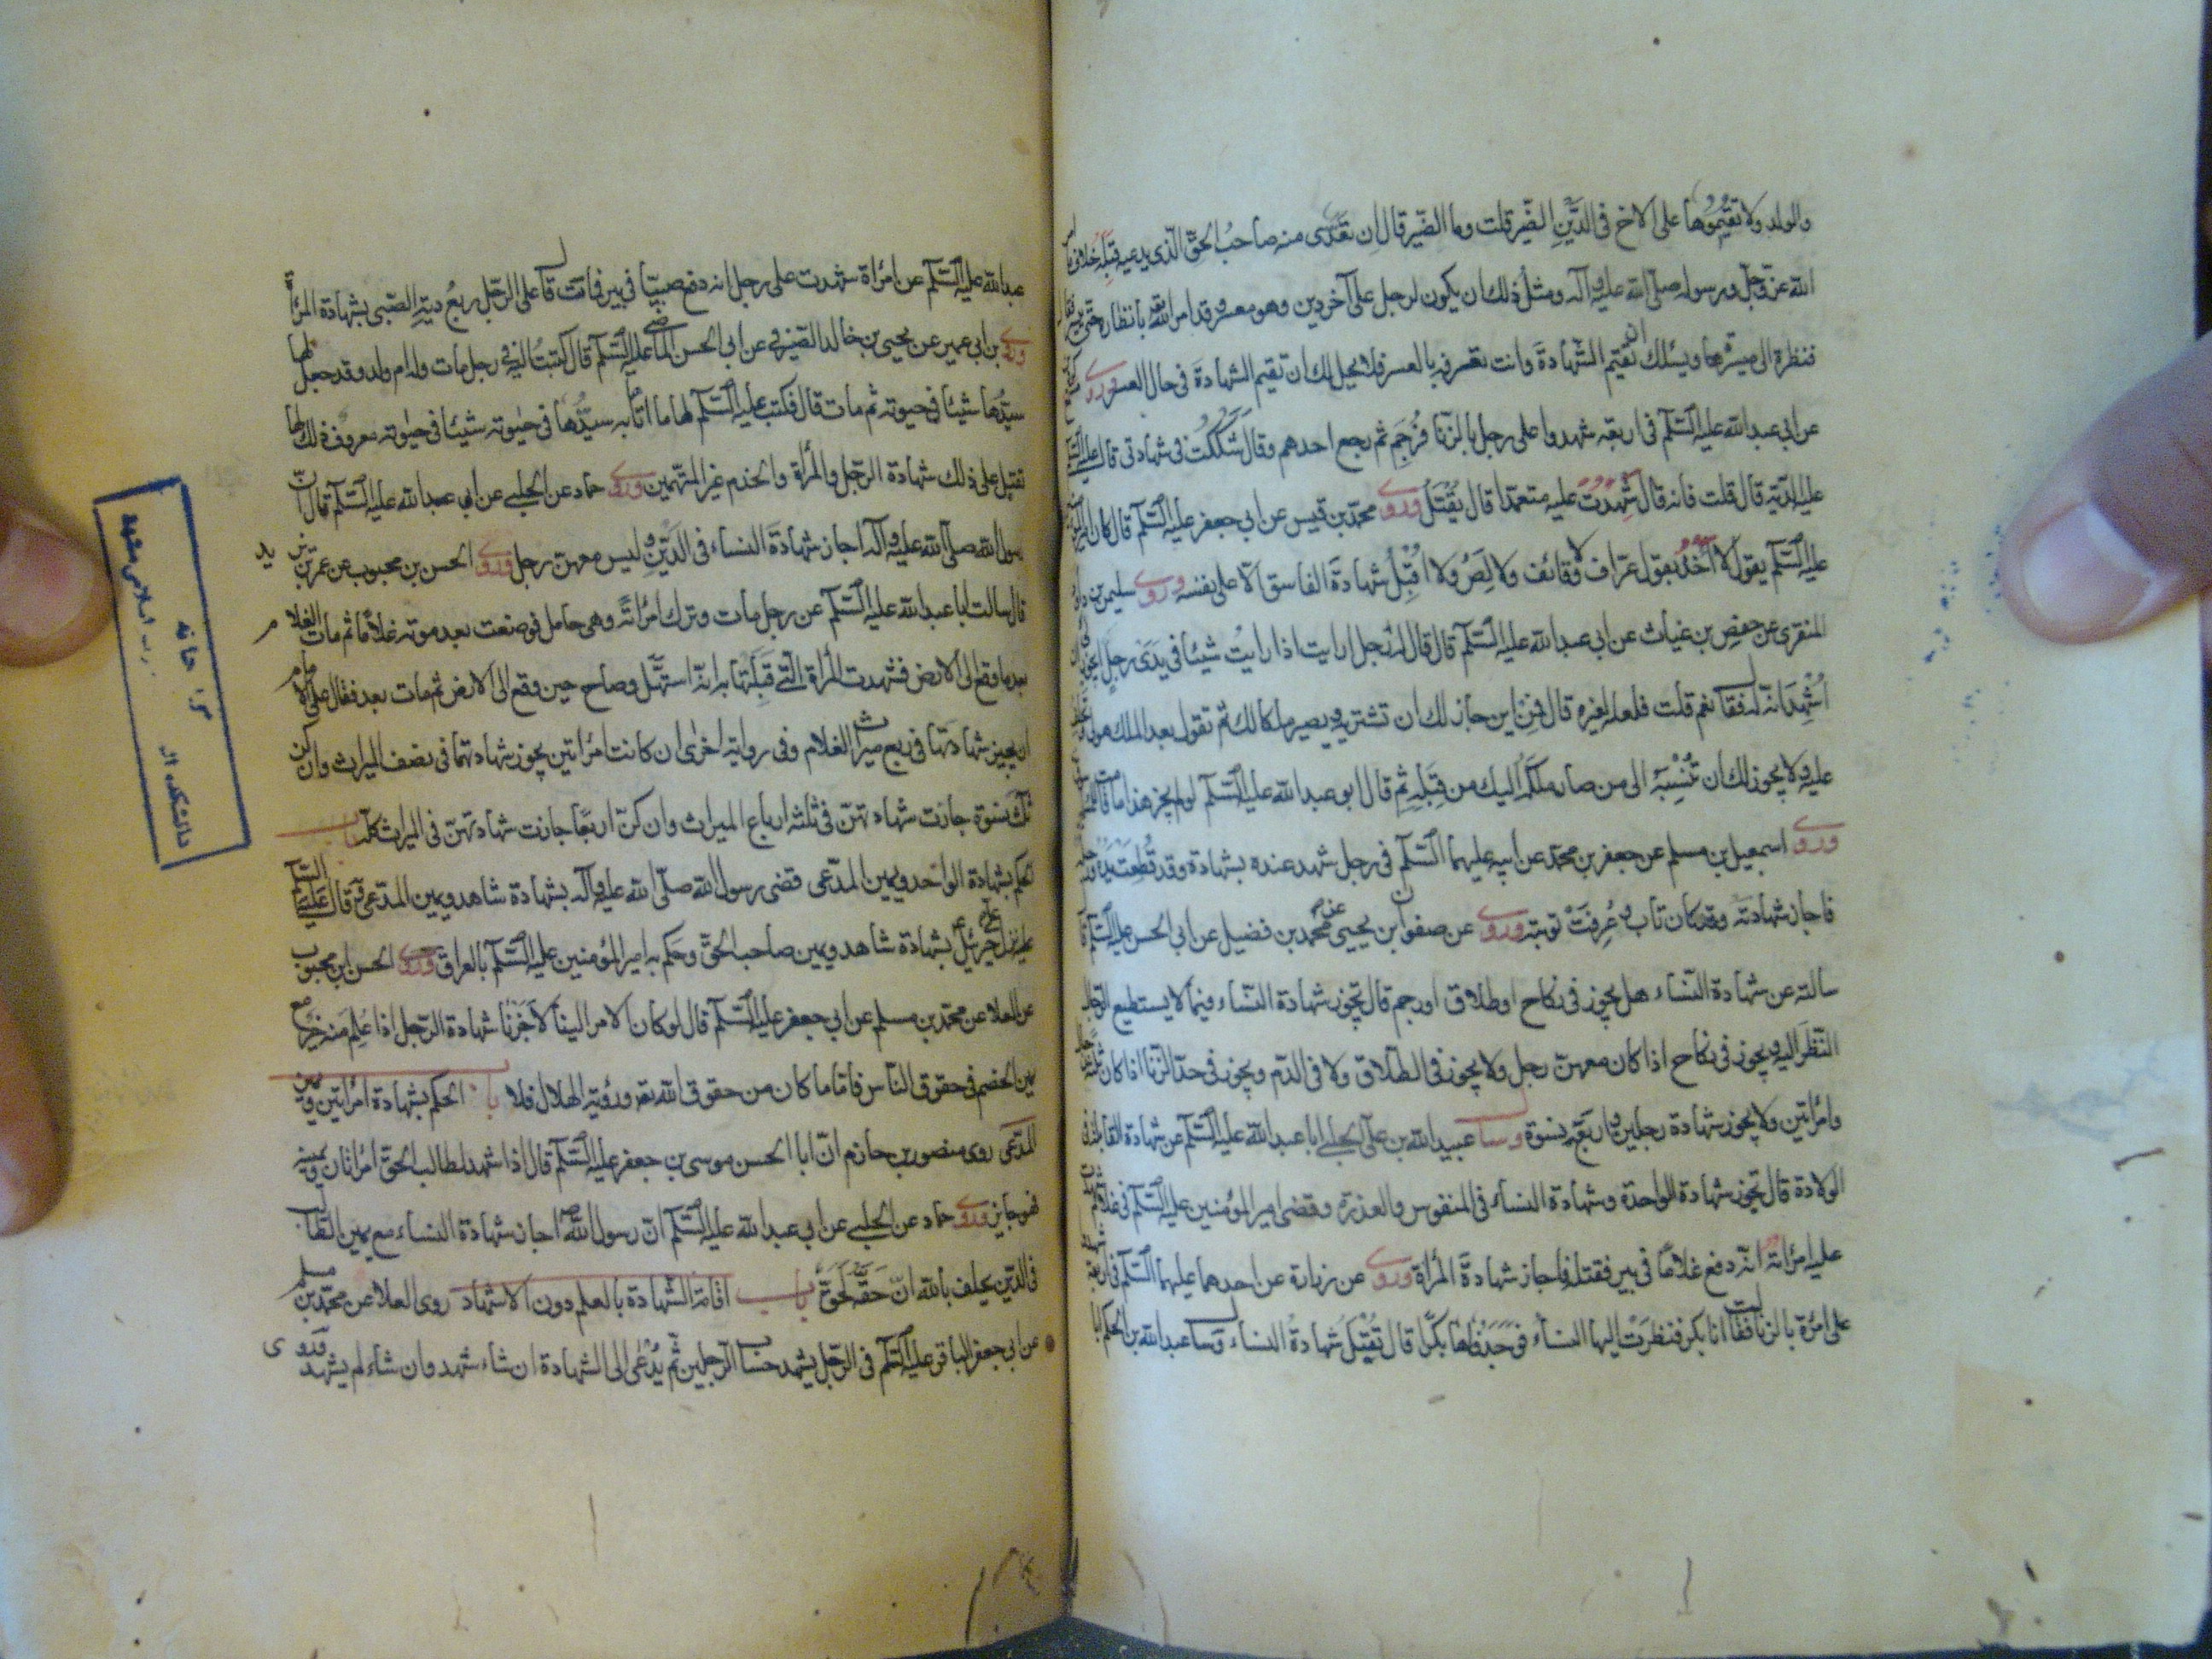 والولد ولا تقيموها على الاخ في الدَّيْنِ الضّير قلت وما الضّير قال ان تَعَدّى منه صاحبُ الحقّ الّذي يدعيه قِبَلَه خلاف ما
الله عزّ وجلّ ورسوله صلّى الله عليه وآله ومثل ذلك ان يكون لرجل على آخر دين وهو معسر وقد امر الله بانظاره حتى ييسر
فنظرة الى ميسرة ويسئلك ان تقيم الشّهادة وانت تعرفه بالعسر فلا يحل لك ان تقيم الشهادة في حال العسر وروى
عن ابي عبد الله عليه السّلم في اربعة شهدوا على رجل بالزنا فرُجِمَ ثم رجع احدهم وقال شَكَكْتُ في شهادتي قال عليه
عليه الدّية قال قلت فانه قال شَهِدْتُ عليه متعمدا قال يُقْتَلُ وروى محمّد بن قيس عن ابي جعفر عليه السّلم قال كان
عليه السّلم يقول لا آخُذُ بقول عرّاف ولا قائف ولا لِصّ ولا اقْبلُ شهادَة الفاسق الّا على نفسه وروى سليمن بن داود
المنقري عن حفص بن غياث عن ابي عبد الله عليه السّلم قال قال له رجل ارايت اذا رايتُ شيئا في يَدَى رجلٍ ايجوز ان
اَشْهَد انّه له فقال نعم قلت فلعله لغيره قال فمِنْ اين جاز لك ان تشتريه ويصير ملكا لك ثم تقول بعد الملك هو لي
عليه ولا يجوز لك ان تَنْسِبَه الى من صار ملكه اليك من قِبَلِهِ ثم قال ابو عبد الله عليه السّلم لو لم يجز هذا ما قامت
وروى اسمعيل بن مسلم عن جعفر بن محمّد عن ابيه عليهما السّلم في رجل شهد عنده بشهادة وقد قُطِعَتْ يَدُه
فاجاز شهادته وقد كان تاب وعُرِفَتْ توبته وروى عن صفوان بن يحيى عن محمّد بن فضيل عن ابي الحسن عليه السّلم قال
سالته عن شهادة النّساء هل يجوز في نكاح او طلاق او رجم قال تجوز شهادة النّساء فيما لا يستطيع الرّجال
النّظَرَ اليه ويجوز في نكاح اذا كان معهنّ رجل ولا يجوز في الطّلاق ولا في الدّم ويجوز في حدّ الزّنا اذا كان ثلثة
وامراتين ولا يجوز شهادة رجلين واربَع نسوة وسال عبيد الله بن علىّ الحلبي ابا عبد الله عليه السّلم عن شهادة القابلة في
الولادة قال تجوز شهادة الواحدة وشهادة النساء في المنفوس والعذرة وقضى امير المؤمنين عليه السّلم في غلام
عليه امراة انّه دفع غلامًا في بير فقتله فاجاز شهادة المراة وروى عن زرارة عن احدهما عليهما السّلم في اربعة
على امرة بالزنا فقالت انا بكر فنظرَتْ اليها النساء فوَجَدْنَاها بكرًا قال تُقْبَلُ شهادةُ النساء وسال عبد الله بن الحكم ابا
عبد الله عليه السّلم عن امراة شهدت على رجل انه دفع صبيّا في بير فمات قال على الرّجل ربعُ دية الصّبى بشهادة المراة
وروى بن ابي عمير عن يحيى بن خالد الصّيرفي عن ابي الحسن الماضي عليه السّلم قال كتبتُ اليه في رجل مات وله ام ولد وقد جعل لها
سيّدُها شيئا في حيوته ثم مات قال فكتب عليه السّلم لها ما اثابها به سيّدُها في حيوته شيئا في حيوته معروف ذلك لها
تقبل على ذلك شهادة الرّجل والمراة والخدم غير المتّهمين وروى حماد عن الحلبي عن ابي عبد الله عليه السّلم قال انّ
رسول الله صلّى الله عليه وآله اجاز شهادَة النساء في الدَّيْنِ وليس معهنّ رجل وروى الحسن بن محبوب عن عمر بن يزيد
قال سالت ابا عبد الله عليه السّلم عن رجل مات وترك امراتَه وهي حامل فوضعت بعد موته غلامًا ثم مات الغلام
بعد ما وقع الى الارض فشهدت المراة الّتي قَبِلَتْها به انّه استَهَلّ وصاح حين وقع الى الارض ثم مات بعد فقال على الامام
ان يجيز شهادتَها في ربع ميراث الغلام وفي رواية اخرى ان كانت امراتين يجوز شهادتهما في نصف الميراث وان كنّ
ثلث نسوة جازت شهادتهنّ في ثلثة ارباع الميراث وان كنّ اربعًا جازت شهادتهنّ في الميراث كلّه باب
الحكم بشهادة الواحد ويمين المدّعى قضى رسول الله صلّى الله عليه وآله بشهادة شاهد ويمين المدّعى وقال عليه السّلم
نزل جبرئيل بشهادة شاهد ويمين صاحب الحقّ وحكم به امير المؤمنين عليه السّلم بالعراق وروى الحسن بن محبوب
عن العلا عن محمّد بن مسلم عن ابي جعفر عليه السّلم قال لو كان الامر الينا لاَجَزْنا شهادة الرّجل اذا عُلِمَ منه خير مع
يمين الخصم في حقوق النّاس فامّا ما كان من حقوق الله تعه ورؤية الهلال فلا باب الحكم بشهادة امراتين ويمين
المدّعى روى منصور بن حازم انّ ابا الحسن موسى بن جعفر عليه السّلم قال اذا شهد لطالب الحقّ امراتان ويمينه
فهو جايز وروى حماد عن الحلبي عن ابي عبد الله عليه السّلم انّ رسول الله اجاز شهادة النساء مع يمين الطالب
في الدّين يحلف بالله انّ حَقّه لَحَقٌّ باب اقامة الشّهادة بالعلم دون الاشهاد روى العلا عن محمّد بن مسلم
عن ابي جعفر الباقر عليه السّلم في الرّجل يشهد حساب الرّجلين ثم يُدْعى الى الشهادة ان شاء شهد وان شاء لم يشهد وروى